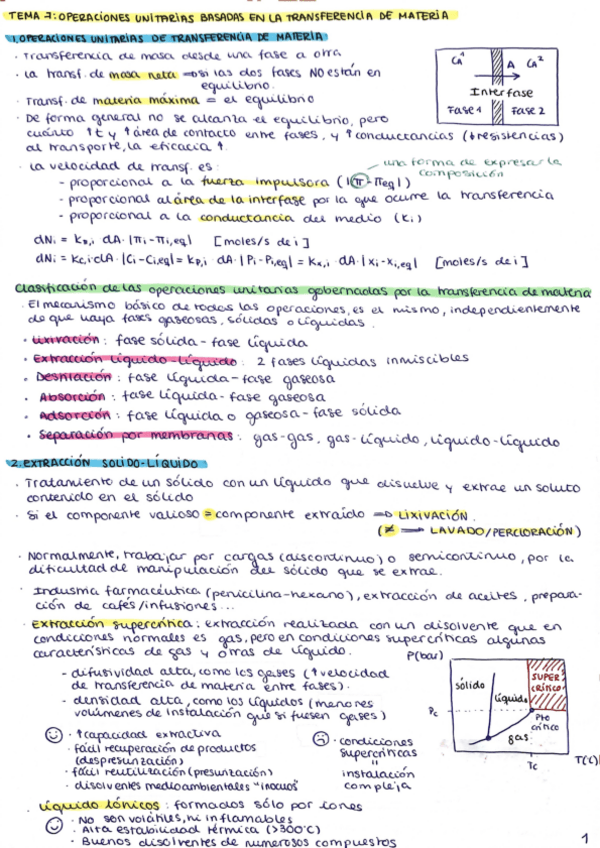 TEMA 7: OPERACIONES UNITARIAS BASADAS EN LA TRANSFERENCIA DE MATERIA
1. OPERACIONES UNITARIAS DE TRANSFERENCIA DE MATERIA
· Transferencia de masa desde una fase a otra
· La transf. de masa neta ⇒ si las dos fases NO están en
equilibrio.
· Transf. de materia máxima = el equilibrio
CA¹ A CA²
Interfase
Fase 1 Fase 2
· De forma general no se alcanza el equilibrio, pero
cuánto ↑t y ↑área de contacto entre fases, y ↑conductancias (↓resistencias)
al transporte, la eficacia ↑.
· La velocidad de transf. es:
una forma de expresar la
composición
- proporcional a la fuerza impulsora (|π-πeq|)
- proporcional al área de la interfase por la que ocurre la transferencia
- proporcional a la conductancia del medio (Ki)
dNi = Kπ,i · dA · |πi-πi,eq| [moles/s de i]
dNi = Kc,i·dA·|Ci-Ci,eq| = Kp,i · dA · |Pi-Pi,eq| = Kx,i · dA · |xi-xi,eq| [moles/s de i]
Clasificación de las operaciones unitarias gobernadas por la transferencia de materia
· El mecanismo básico de todas las operaciones, es el mismo, independientemente
de que haya fases gaseosas, sólidas o líquidas.
· Lixiviación: fase sólida - fase líquida
· Extracción líquido-líquido: 2 fases líquidas inmiscibles
· Destilación: fase líquida - fase gaseosa
· Absorción: fase líquida - fase gaseosa
· Adsorción: fase líquida o gaseosa - fase sólida
· Separación por membranas: gas-gas, gas-líquido, líquido-líquido
2. EXTRACCIÓN SÓLIDO-LÍQUIDO
· Tratamiento de un sólido con un líquido que disuelve y extrae un soluto
contenido en el sólido
· Si el componente valioso = componente extraído ⇒ LIXIVACIÓN.
(≠ → LAVADO/PERCLORACIÓN)
· Normalmente, trabajar por cargas (discontinuo) o semicontinuo, por la
dificultad de manipulación del sólido que se extrae.
· Industria farmacéutica (penicilina-hexano), extracción de aceites, prepara-
ción de cafés/infusiones...
· Extracción supercrítica: extracción realizada con un disolvente que en
condiciones normales es gas, pero en condiciones supercríticas algunas
características de gas y otras de líquido.
- difusividad alta, como los gases (↑velocidad
de transferencia de materia entre fases).
- densidad alta, como los líquidos (menores
volúmenes de instalación que si fuesen gases)
· ↑capacidad extractiva
· fácil recuperación de productos
(despresurización)
· fácil reutilización (presurización)
· disolventes medioambientales "inocuos"
· condiciones
supercríticas
=
instalación
compleja
P(bar)
sólido
líquido
SUPER
CRÍTICO
Pc
Pto
crítico
gas
Tc
T(C)
· Líquido Iónicos: formados sólo por iones
· No son volátiles, ni inflamables
· Alta estabilidad térmica (>300°C)
· Buenos disolventes de numerosos compuestos
1